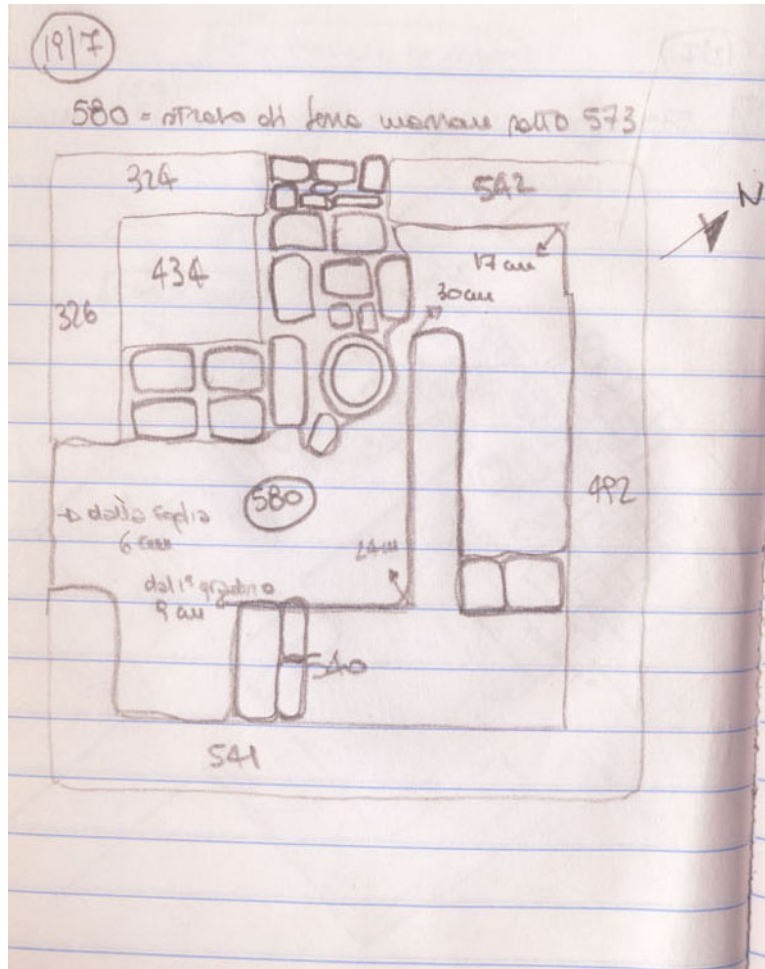 19/7
580 = strato di terra marrone sotto 573
324
542
N
434
17 cm
30 cm
326
580
492
→ dalla soglia
6 cm
24 cm
dal 1° gradino
9 cm
540
541